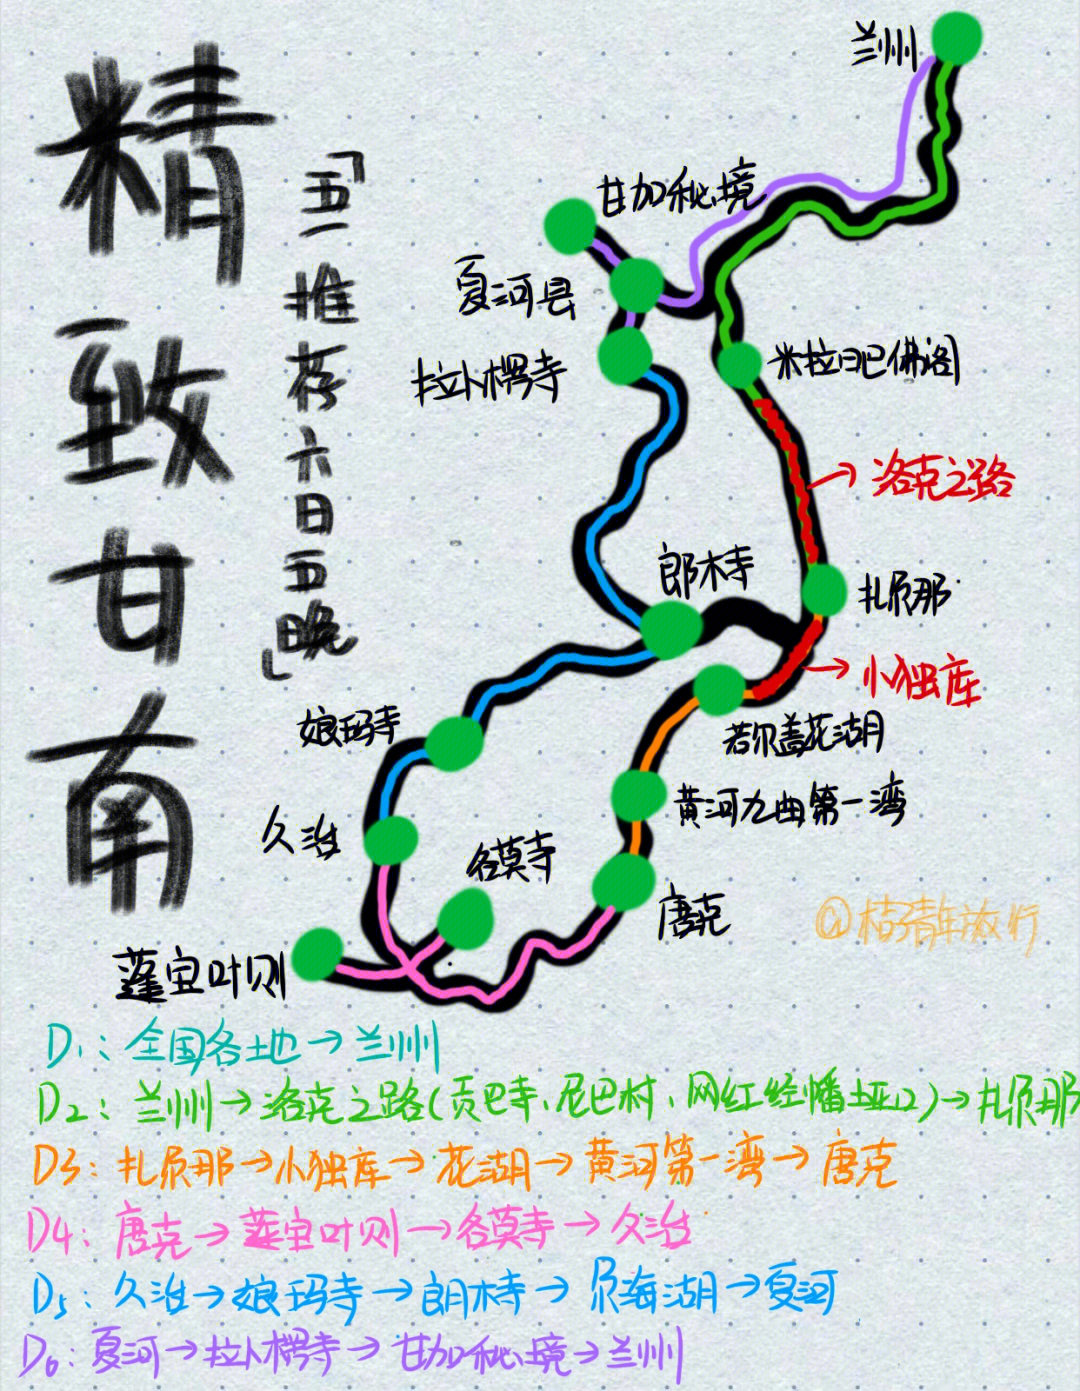 精致甘南
「五一推荐六日五晚」
兰州
甘加秘境
夏河县
拉卜楞寺
米拉日巴佛阁
→洛克之路
郎木寺
扎尕那
→小独库
娘玛寺
若尔盖花湖
黄河九曲第一湾
久治
各莫寺
唐克
莲宝叶则
D1:全国各地→兰州
D2:兰州→洛克之路(贡巴寺、尼巴村、网红经幡垭口)→扎尕那
D3:扎尕那→小独库→花湖→黄河第一湾→唐克
D4:唐克→莲宝叶则→各莫寺→久治
D5:久治→娘玛寺→郎木寺→尕海湖→夏河
D6:夏河→拉卜楞寺→甘加秘境→兰州